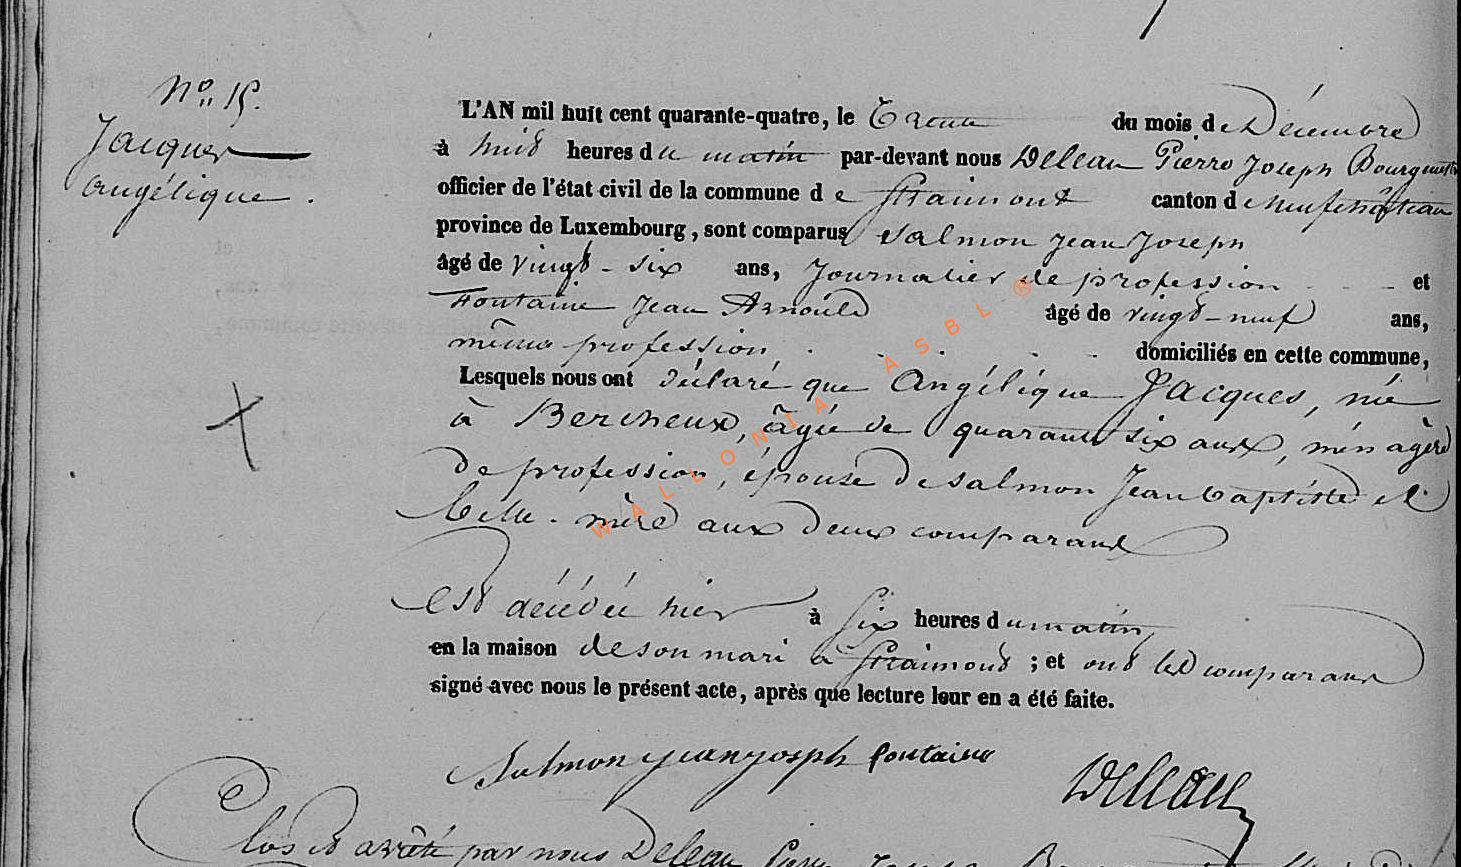 N° 15.
Jacques
Angélique.
L'AN mil huit cent quarante-quatre, le Trente du mois de Décembre
à huit heures du matin par-devant nous Delleau Pierre Joseph Bourgmestre
officier de l'état civil de la commune de Straimont canton de Neufchâteau
province de Luxembourg, sont comparus Salmon Jean Joseph
âgé de vingt-six ans, Journalier de profession et
Fontaine Jean Arnould âgé de vingt-neuf ans,
même profession, domiciliés en cette commune,
Lesquels nous ont déclaré que Angélique Jacques, née
à Bercheux, âgée de quarante six ans, ménagère
de profession, épouse de Salmon Jean baptiste et
belle-mère aux deux comparans
est décédée hier à six heures du matin,
en la maison de son mari à Straimont ; et ont les comparans
signé avec nous le présent acte, après que lecture leur en a été faite.
Salmon jean joseph fontaine Delleau
Clos et arrêté par nous Delleau Pierre Joseph
WALLONIA ASBL ®